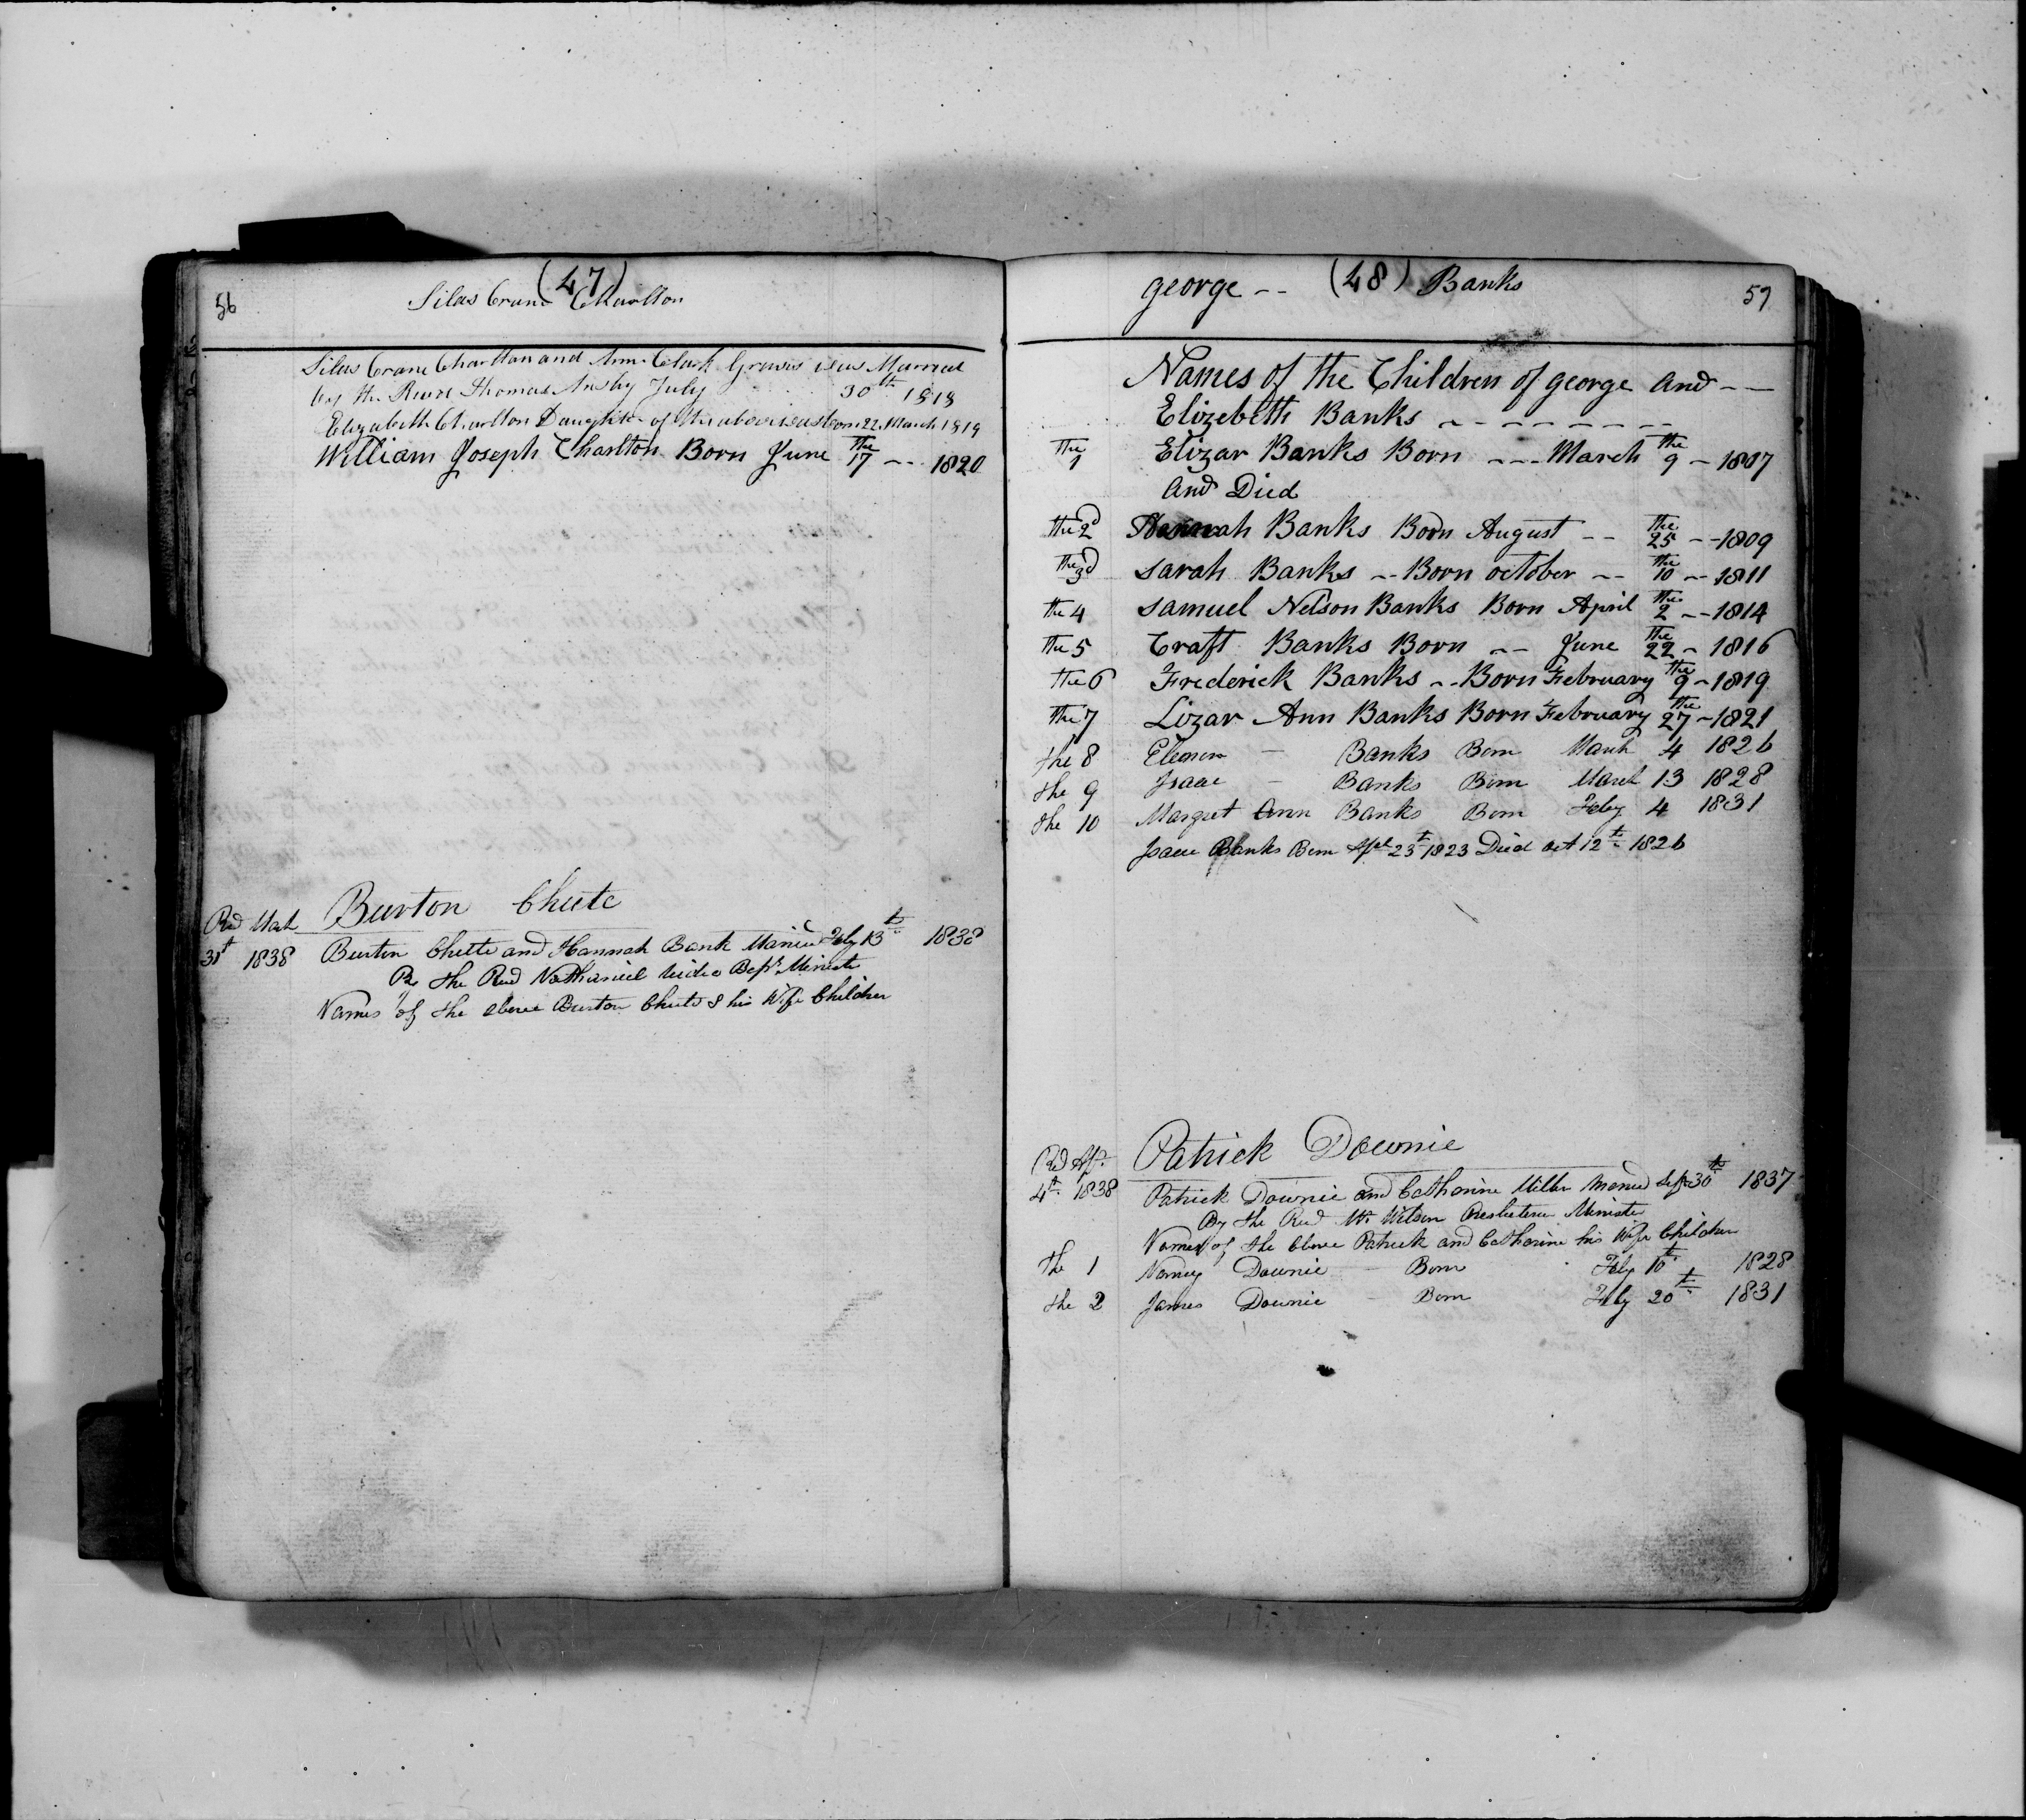 56
(47)
Silas Crane Charlton
Silas Crane Charlton and Ann Clark Graves was Married
by the Revd Thomas Ansly July 30th 1818
Elizabeth Charlton Daughter of the above was born 22 March 1819
William Joseph Charlton Born June the 17 -- 1820
Burton Chute
Rd Mach
31t 1838 Burton Chute and Hannah Bank Maried Feby 13th 1838
By the Revd Nathaniel Bapt Minister
Names of the above Burton Chute & his Wife Children
george -- (48) Banks
57
Names of the Children of george and --
Elizebeth Banks
the 1 Elizar Banks Born --- March the 9 - 1807
and Died
the 2d Hannah Banks Born August -- the 25 -- 1809
the 3d Sarah Banks -- Born october -- the 10 -- 1811
the 4 Samuel Nelson Banks Born April the 2 -- 1814
the 5 Craft Banks Born -- June the 22 - 1816
the 6 Frederick Banks -- Born February the 9 - 1819
the 7 Lizar Ann Banks Born February the 27 - 1821
the 8 Elenor - Banks Born March 4 1826
the 9 Isaac - Banks Born March 13 1828
the 10 Margret Ann Banks Born Feby 4 1831
Isaac Banks Born 23t 1823 Died oct 12th 1826
Patrick Downie
Rd Apr
4th 1838 Patrick Downie and Catherine Miller Maried Sept 30th 1837
By the Revd Mr Wilson Presbeterian Minister
Names of the above Patrick and Catherine his Wife Children
the 1 Nancy Downie - Born Feby 10th 1828
the 2 James Downie - Born Feby 20th 1831